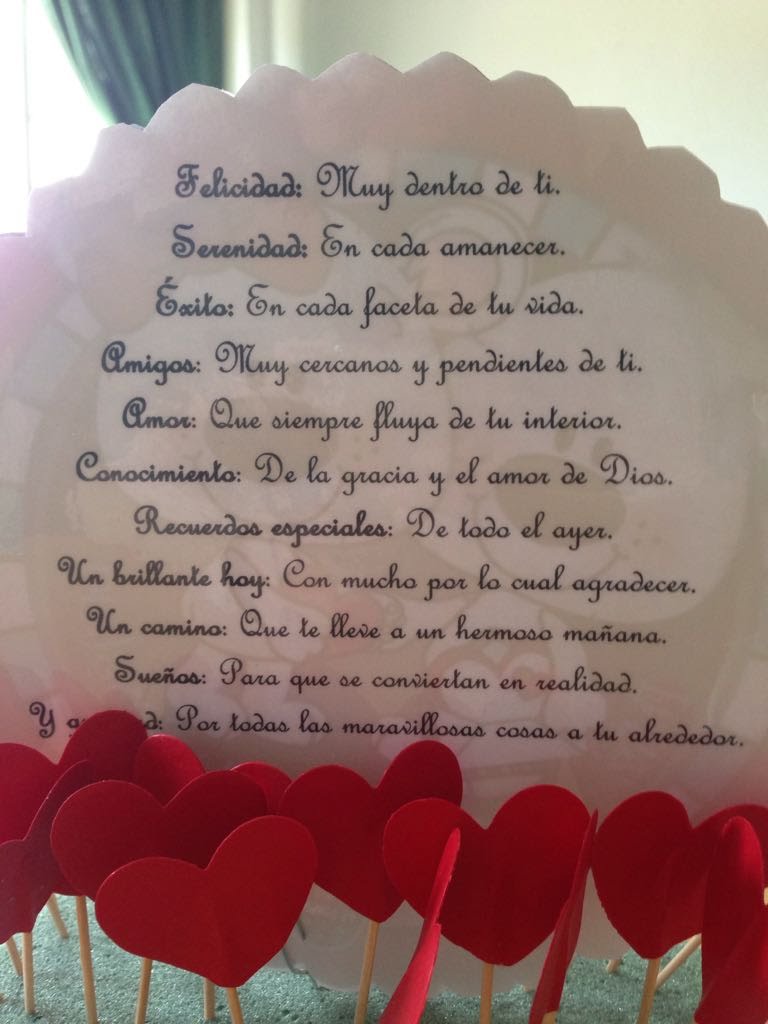 Felicidad: Muy dentro de ti.
Serenidad: En cada amanecer.
Éxito: En cada faceta de tu vida.
Amigos: Muy cercanos y pendientes de ti.
Amor: Que siempre fluya de tu interior.
Conocimiento: De la gracia y el amor de Dios.
Recuerdos especiales: De todo el ayer.
Un brillante hoy: Con mucho por lo cual agradecer.
Un camino: Que te lleve a un hermoso mañana.
Sueños: Para que se conviertan en realidad.
Y Por todas las maravillosas cosas a tu alrededor.